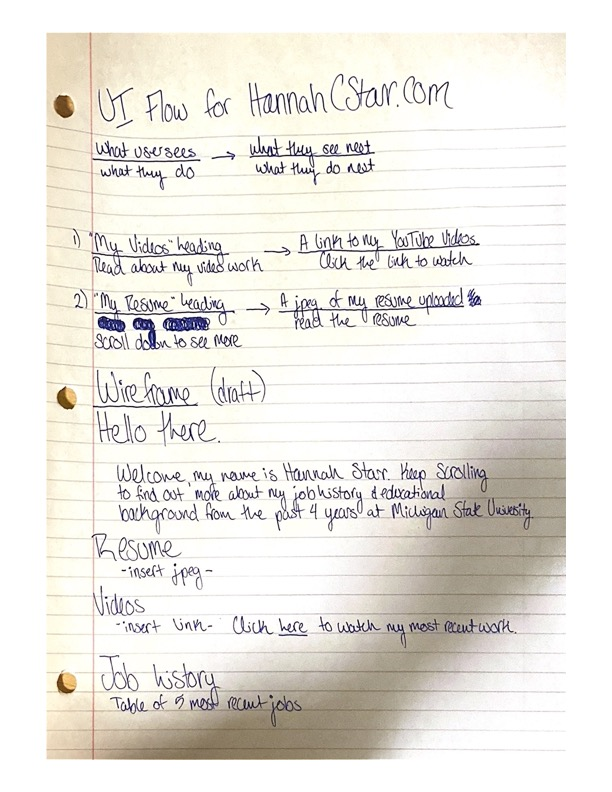 UI Flow for HannahCStarr.com
What user sees → what they see next
what they do what they do next
1) "My Videos" heading → A link to my YouTube Videos
Read about my video work Click the link to watch
2) "My Resume" heading → A jpeg of my resume uploaded
read the resume
Scroll down to see more
Wireframe (draft)
Hello there.
Welcome, my name is Hannah Starr. Keep Scrolling
to find out more about my job history & educational
background from the past 4 years at Michigan State University.
Resume
-insert jpeg-
Videos
-insert link- Click here to watch my most recent work.
Job history
Table of 5 most recent jobs